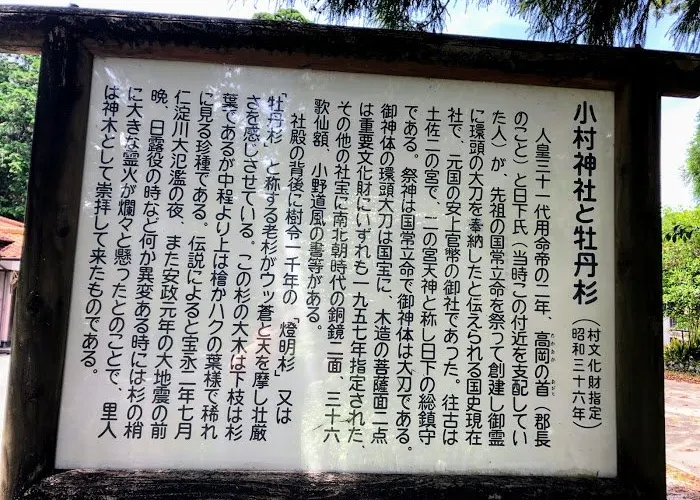 小村神社と牡丹杉
（村文化財指定
昭和三十六年）
人皇三十一代用命帝の二年、高岡の首（郡長
たかおか
おびと
のこと）と日下氏（当時この付近を支配してい
た人）が、先祖の国常立命を祭って創建し御霊
に環頭の大刀を奉納したと伝えられる国史現在
社で、元国の安上官幣の御社であった。往古は
土佐二の宮で、二の宮天神と称し日下の総鎮守
である。祭神は国常立命で御神体は大刀である。
御神体の環頭大刀は国宝に、木造の菩薩面二点
は重要文化財にいずれも一九五七年指定された、
その他の社宝に南北朝時代の銅鏡二面、三十六
歌仙額、小野道風の書等がある。
社殿の背後に樹令一千年の「燈明杉」又は
「牡丹杉」と称する老杉がウッ蒼と天を摩し壮厳
さを感じさせている。この杉の大木は下枝は杉
葉であるが中程より上は檜かハクの葉様で稀れ
に見る珍種である。伝説によると宝永二年七月
仁淀川大氾濫の夜、また安政元年の大地震の前
晩、日露役の時など何か異変ある時には杉の梢
に大きな霊火が爛々と懸ったとのことで、里人
は神木として崇拝して来たものである。